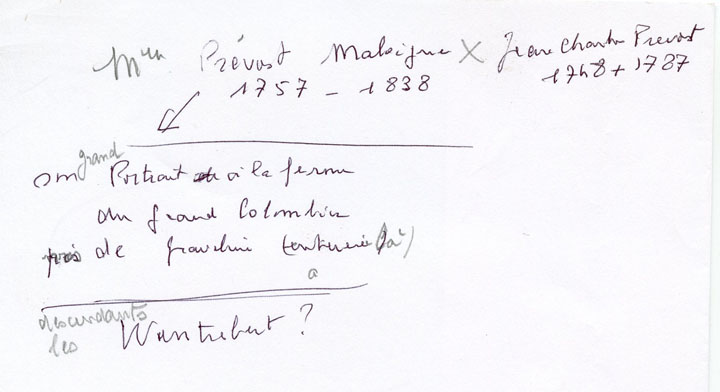 Mme Prévost Maloigne X Jean Charles Prevost
1757 - 1838 1748 + 1787
grand
on Portrait à la ferme
du grand Colombier
près de
a
descendants
les Wautrebert ?